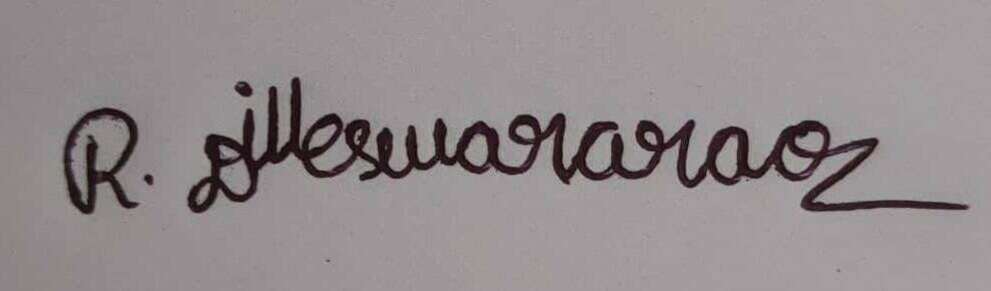 R. Dilleswararao